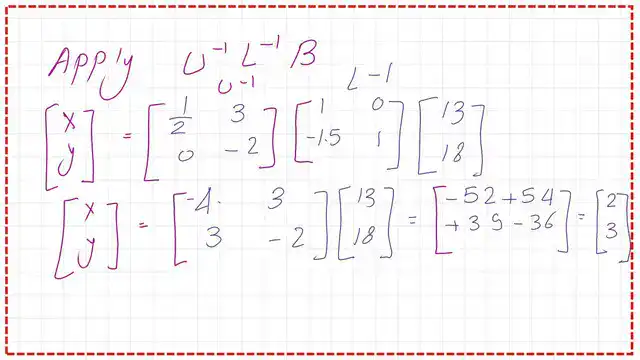 Apply U⁻¹ L⁻¹ B
U⁻¹ L⁻¹
[x y] = [1/2 3 0 -2] [1 0 -1.5 1] [13 18]
[x y] = [-4. 3 3 -2] [13 18] = [-52+54 +39-36] = [2 3]